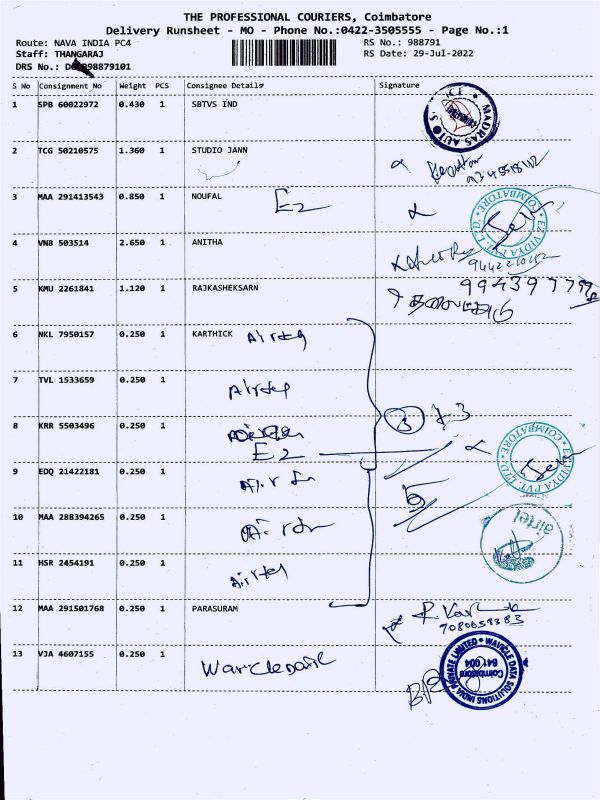 THE PROFESSIONAL COURIERS, Coimbatore
Delivery Runsheet - MO - Phone No.:0422-3505555 - Page No.:1
Route: NAVA INDIA PC4 RS No.: 988791
Staff: THANGARAJ RS Date: 29-Jul-2022
DRS No.: 98879101
S No Consignment No Weight PCS Consignee Details Signature
1 SPB 60022972 0.430 1 SBTVS IND
MADRAS AUTO S
2 TCG 50210575 1.360 1 STUDIO JANN
3 MAA 291413543 0.850 1 NOUFAL E2
EZ VIDYA PVT. LTD. COIMBATORE
4 VNB 503514 2.650 1 ANITHA
5 KMU 2261841 1.120 1 RAJKASHEKSARN
6 NKL 7950157 0.250 1 KARTHICK Airtel
7 TVL 1533659 0.250 1 Airtel
8 KRR 5503496 0.250 1
E2
EZ VIDYA PVT. LTD. COIMBATORE
9 EDQ 21422181 0.250 1
5
10 MAA 288394265 0.250 1
airtel
11 HSR 2454191 0.250 1 Airtel
12 MAA 291501768 0.250 1 PARASURAM
13 VJA 4607155 0.250 1
WAVICLE DATA SOLUTIONS INDIA PRIVATE LIMITED
Coimbatore
641 004